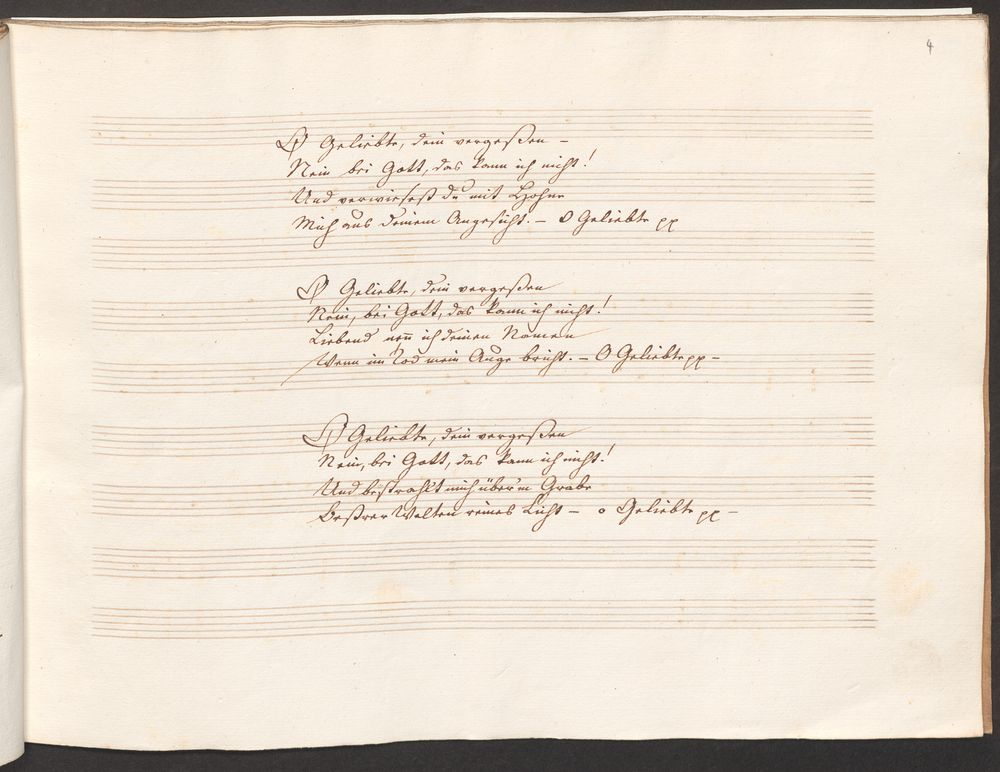 4
O Geliebte, dein vergeßen –
Nein bei Gott, das kann ich nicht!
Und verwiesest du mit Hohne
Mich aus deinem Angesicht. – O Geliebte pp
O Geliebte, dein vergeßen
Nein, bei Gott, das kann ich nicht!
Liebend nen̄ ich deinen Namen
Wenn im Tod mein Auge bricht. – O Geliebte pp –
O Geliebte, dein vergeßen
Nein, bei Gott, das kann ich nicht!
Und bestrahlt mich über'm Grabe
Beßrer Welten reines Licht – o Geliebte pp –